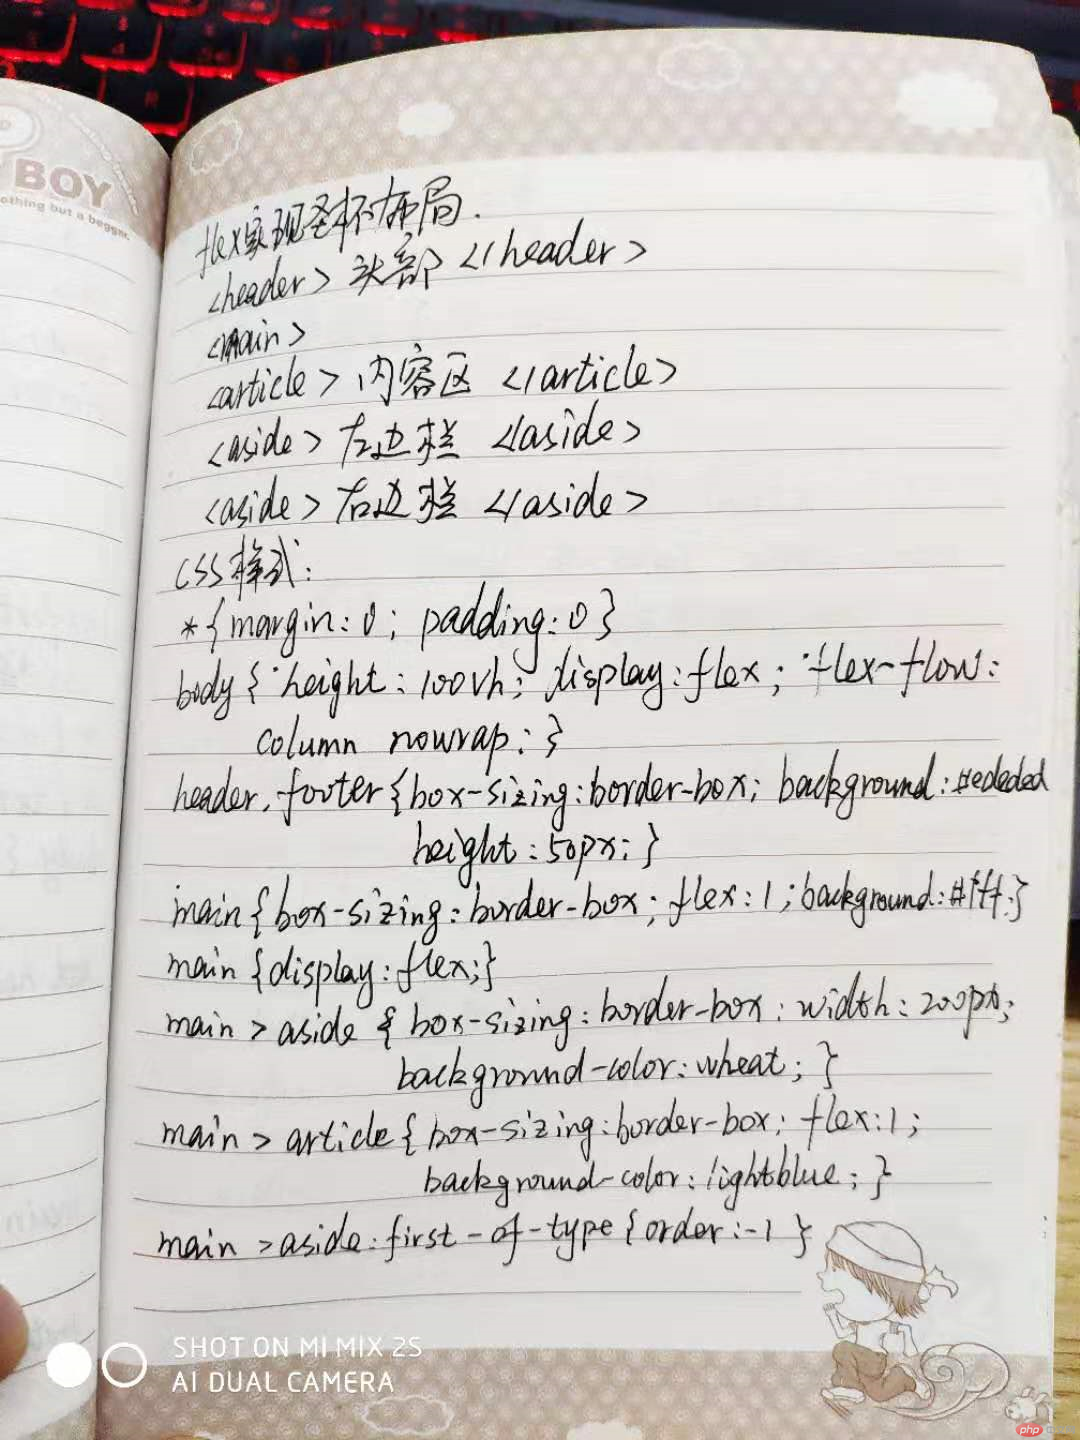 BOY
othing but a begger.
flex实现圣杯布局.
<header> 头部 </header>
<main>
<article> 内容区 </article>
<aside> 左边栏 </aside>
<aside> 右边栏 </aside>
CSS样式:
*{margin:0; padding:0}
body{ height:100vh; display:flex; flex-flow:
column nowrap; }
header,footer{box-sizing:border-box; background:#ededed
height:50px; }
main{box-sizing:border-box; flex:1; background:#fff;}
main{display:flex;}
main>aside { box-sizing:border-box; width:200px;
background-color:wheat; }
main>article{ box-sizing:border-box; flex:1;
background-color:lightblue; }
main>aside:first-of-type{order:-1 }
SHOT ON MI MIX 2S
AI DUAL CAMERA
php